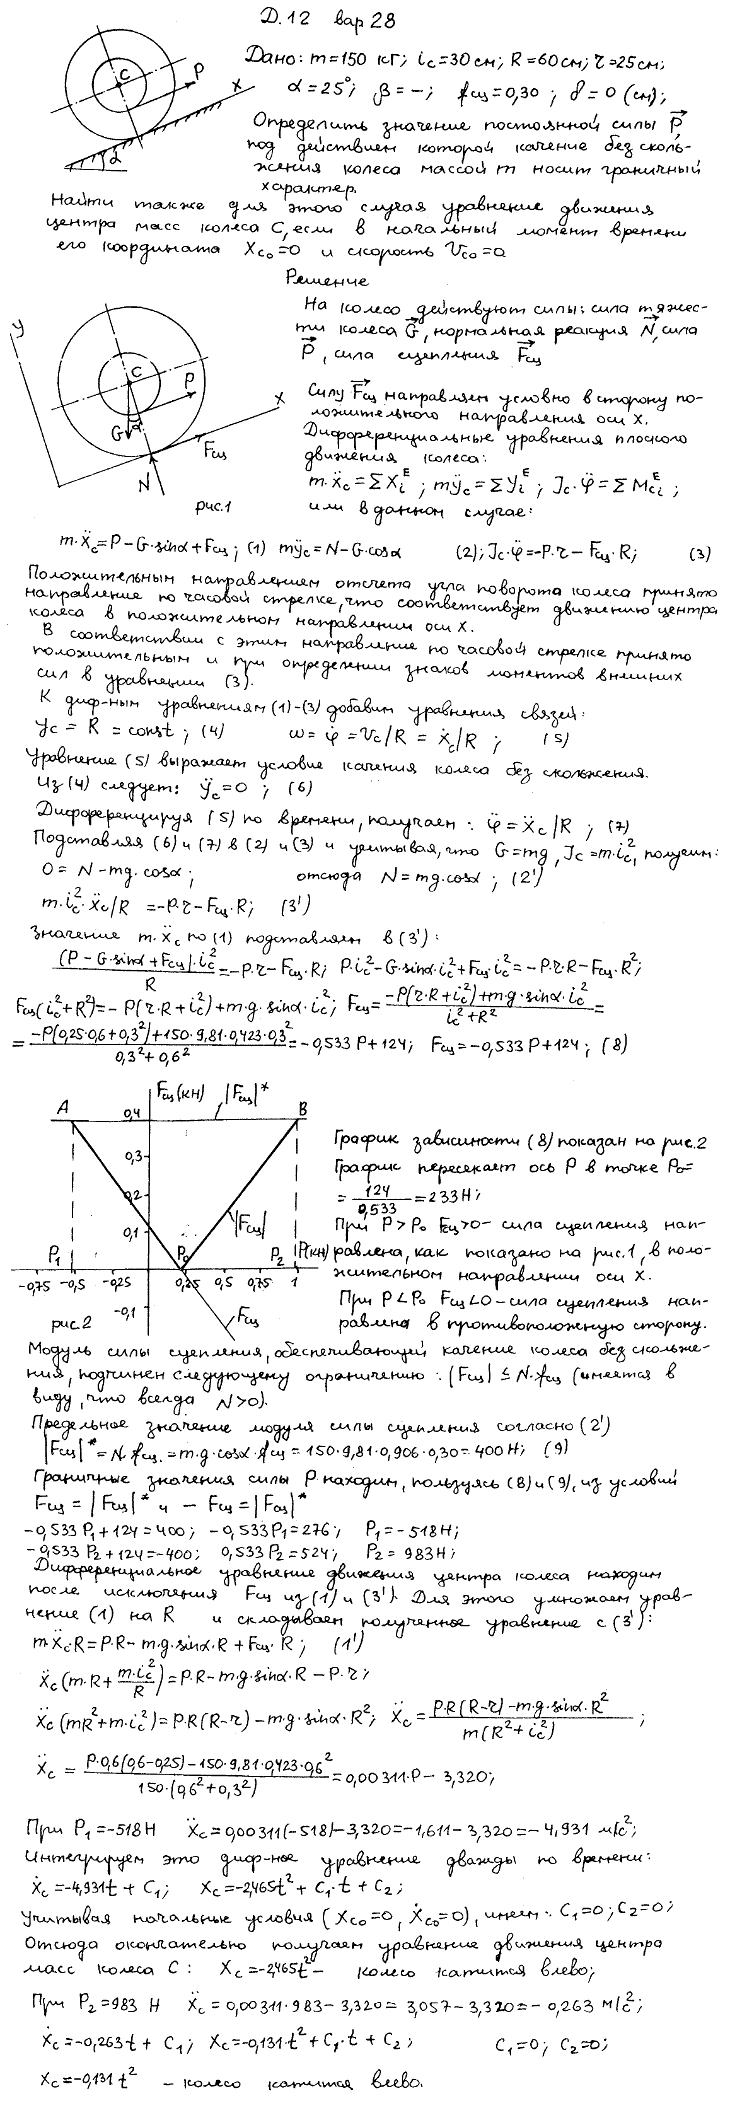 Д.12 вар 28
Дано: m=150 кг; i_c=30 см; R=60см; r=25см;
α=25°; β=–; f_сц=0,30; δ=0 (см);
Определить значение постоянной силы P,
под действием которой качение без сколь-
жения колеса массой m носит граничный
характер.
Найти также для этого случая уравнение движения
центра масс колеса C, если в начальный момент времени
его координата X_C0=0 и скорость V_C0=0
Решение
На колесо действуют силы: сила тяжес-
ти колеса G, нормальная реакция N, сила
P, сила сцепления F_сц
Силу F_сц направляем условно в сторону по-
ложительного направления оси X.
Дифференциальные уравнения плоского
движения колеса:
m·ẍ_c=ΣX_i^E; mÿ_c=ΣY_i^E; J_c·φ̈=ΣM_ci^E;
или в данном случае:
C
P
X
α
y
C
P
X
G
α
F_сц
N
рис.1
m·ẍ_c=P–G·sinα+F_сц; (1) mÿ_c=N–G·cosα (2); J_c·φ̈=–P·r–F_сц·R; (3)
Положительным направлением отсчета угла поворота колеса принято
направление по часовой стрелке, что соответствует движению центра
колеса в положительном направлении оси X.
В соответствии с этим направление по часовой стрелке принято
положительным и при определении знаков моментов внешних
сил в уравнении (3).
К диф-ным уравнениям (1)-(3) добавим уравнения связей:
y_c=R=const; (4) ω=φ̇=V_c/R=ẋ_c/R; (5)
Уравнение (5) выражает условие качения колеса без скольжения.
Из (4) следует: ÿ_c=0; (6)
Дифференцируя (5) по времени, получаем: φ̈=ẍ_c/R; (7)
Подставляя (6) и (7) в (2) и (3) и учитывая, что G=mg, J_c=m·i_c², получим:
0=N–mg·cosα; отсюда N=mg·cosα; (2')
m·i_c²·ẍ_c/R=–P·r–F_сц·R; (3')
Значение m·ẍ_c по (1) подставляем в (3'):
(P–G·sinα+F_сц)·i_c²/R=–P·r–F_сц·R; P·i_c²–G·sinα·i_c²+F_сц·i_c²=–P·r·R–F_сц·R²;
F_сц(i_c²+R²)=–P(r·R+i_c²)+m·g·sinα·i_c²; F_сц=(–P(r·R+i_c²)+m·g·sinα·i_c²)/(i_c²+R²)=
=(–P(0,25·0,6+0,3²)+150·9,81·0,423·0,3²)/(0,3²+0,6²)=–0,533P+124; F_сц=–0,533P+124; (8)
F_сц(кН) |F_сц|*
A B
0,4
0,3
0,2
0,1
|F_сц|
P_1 P_0 P_2 P(кН)
-0,75 -0,5 -0,25 0,25 0,5 0,75 1
-0,1
F_сц
рис.2
График зависимости (8) показан на рис.2
График пересекает ось P в точке P_0=
=124/0,533=233Н;
При P>P_0 F_сц>0- сила сцепления нап-
равлена, как показано на рис.1, в поло-
жительном направлении оси X.
При P<P_0 F_сц<0–сила сцепления нап-
равлена в противоположную сторону.
Модуль силы сцепления, обеспечивающий качение колеса без скольже-
ния, подчинен следующему ограничению: |F_сц|≤N·f_сц (имеется в
виду, что всегда N>0).
Предельное значение модуля силы сцепления согласно (2')
|F_сц|*=N·f_сц.=m·g·cosα·f_сц=150·9,81·0,906·0,30=400Н; (9)
Граничные значения силы P находим, пользуясь (8) и (9), из условий
F_сц=|F_сц|* и –F_сц=|F_сц|*
-0,533P_1+124=400; -0,533P_1=276; P_1=-518Н;
-0,533P_2+124=-400; 0,533P_2=524; P_2=983Н;
Дифференциальное уравнение движения центра колеса находим
после исключения F_сц из (1) и (3'). Для этого умножаем урав-
нение (1) на R и складываем полученное уравнение с (3'):
m·ẍ_c·R=P·R–m·g·sinα·R+F_сц·R; (1')
ẍ_c(m·R+m·i_c²/R)=P·R–m·g·sinα·R–P·r;
ẍ_c(mR²+m·i_c²)=P·R(R–r)–m·g·sinα·R²; ẍ_c=(P·R(R–r)–m·g·sinα·R²)/(m(R²+i_c²));
ẍ_c=(P·0,6(0,6-0,25)–150·9,81·0,423·0,6²)/(150·(0,6²+0,3²))=0,00311·P–3,320;
При P_1=-518Н ẍ_c=0,00311(-518)-3,320=-1,611-3,320=-4,931 м/с²;
Интегрируем это диф-ное уравнение дважды по времени:
ẋ_c=-4,931t+C_1; x_c=-2,465t²+C_1·t+C_2;
Учитывая начальные условия (X_C0=0, ẋ_C0=0), имеем: C_1=0; C_2=0;
Отсюда окончательно получаем уравнение движения центра
масс колеса C: x_c=-2,465t²– колесо катится влево;
При P_2=983 Н ẍ_c=0,00311·983–3,320=3,057–3,320=-0,263 м/с²;
ẋ_c=-0,263t+C_1; x_c=-0,131·t²+C_1·t+C_2; C_1=0; C_2=0;
x_c=-0,131t² – колесо катится влево.